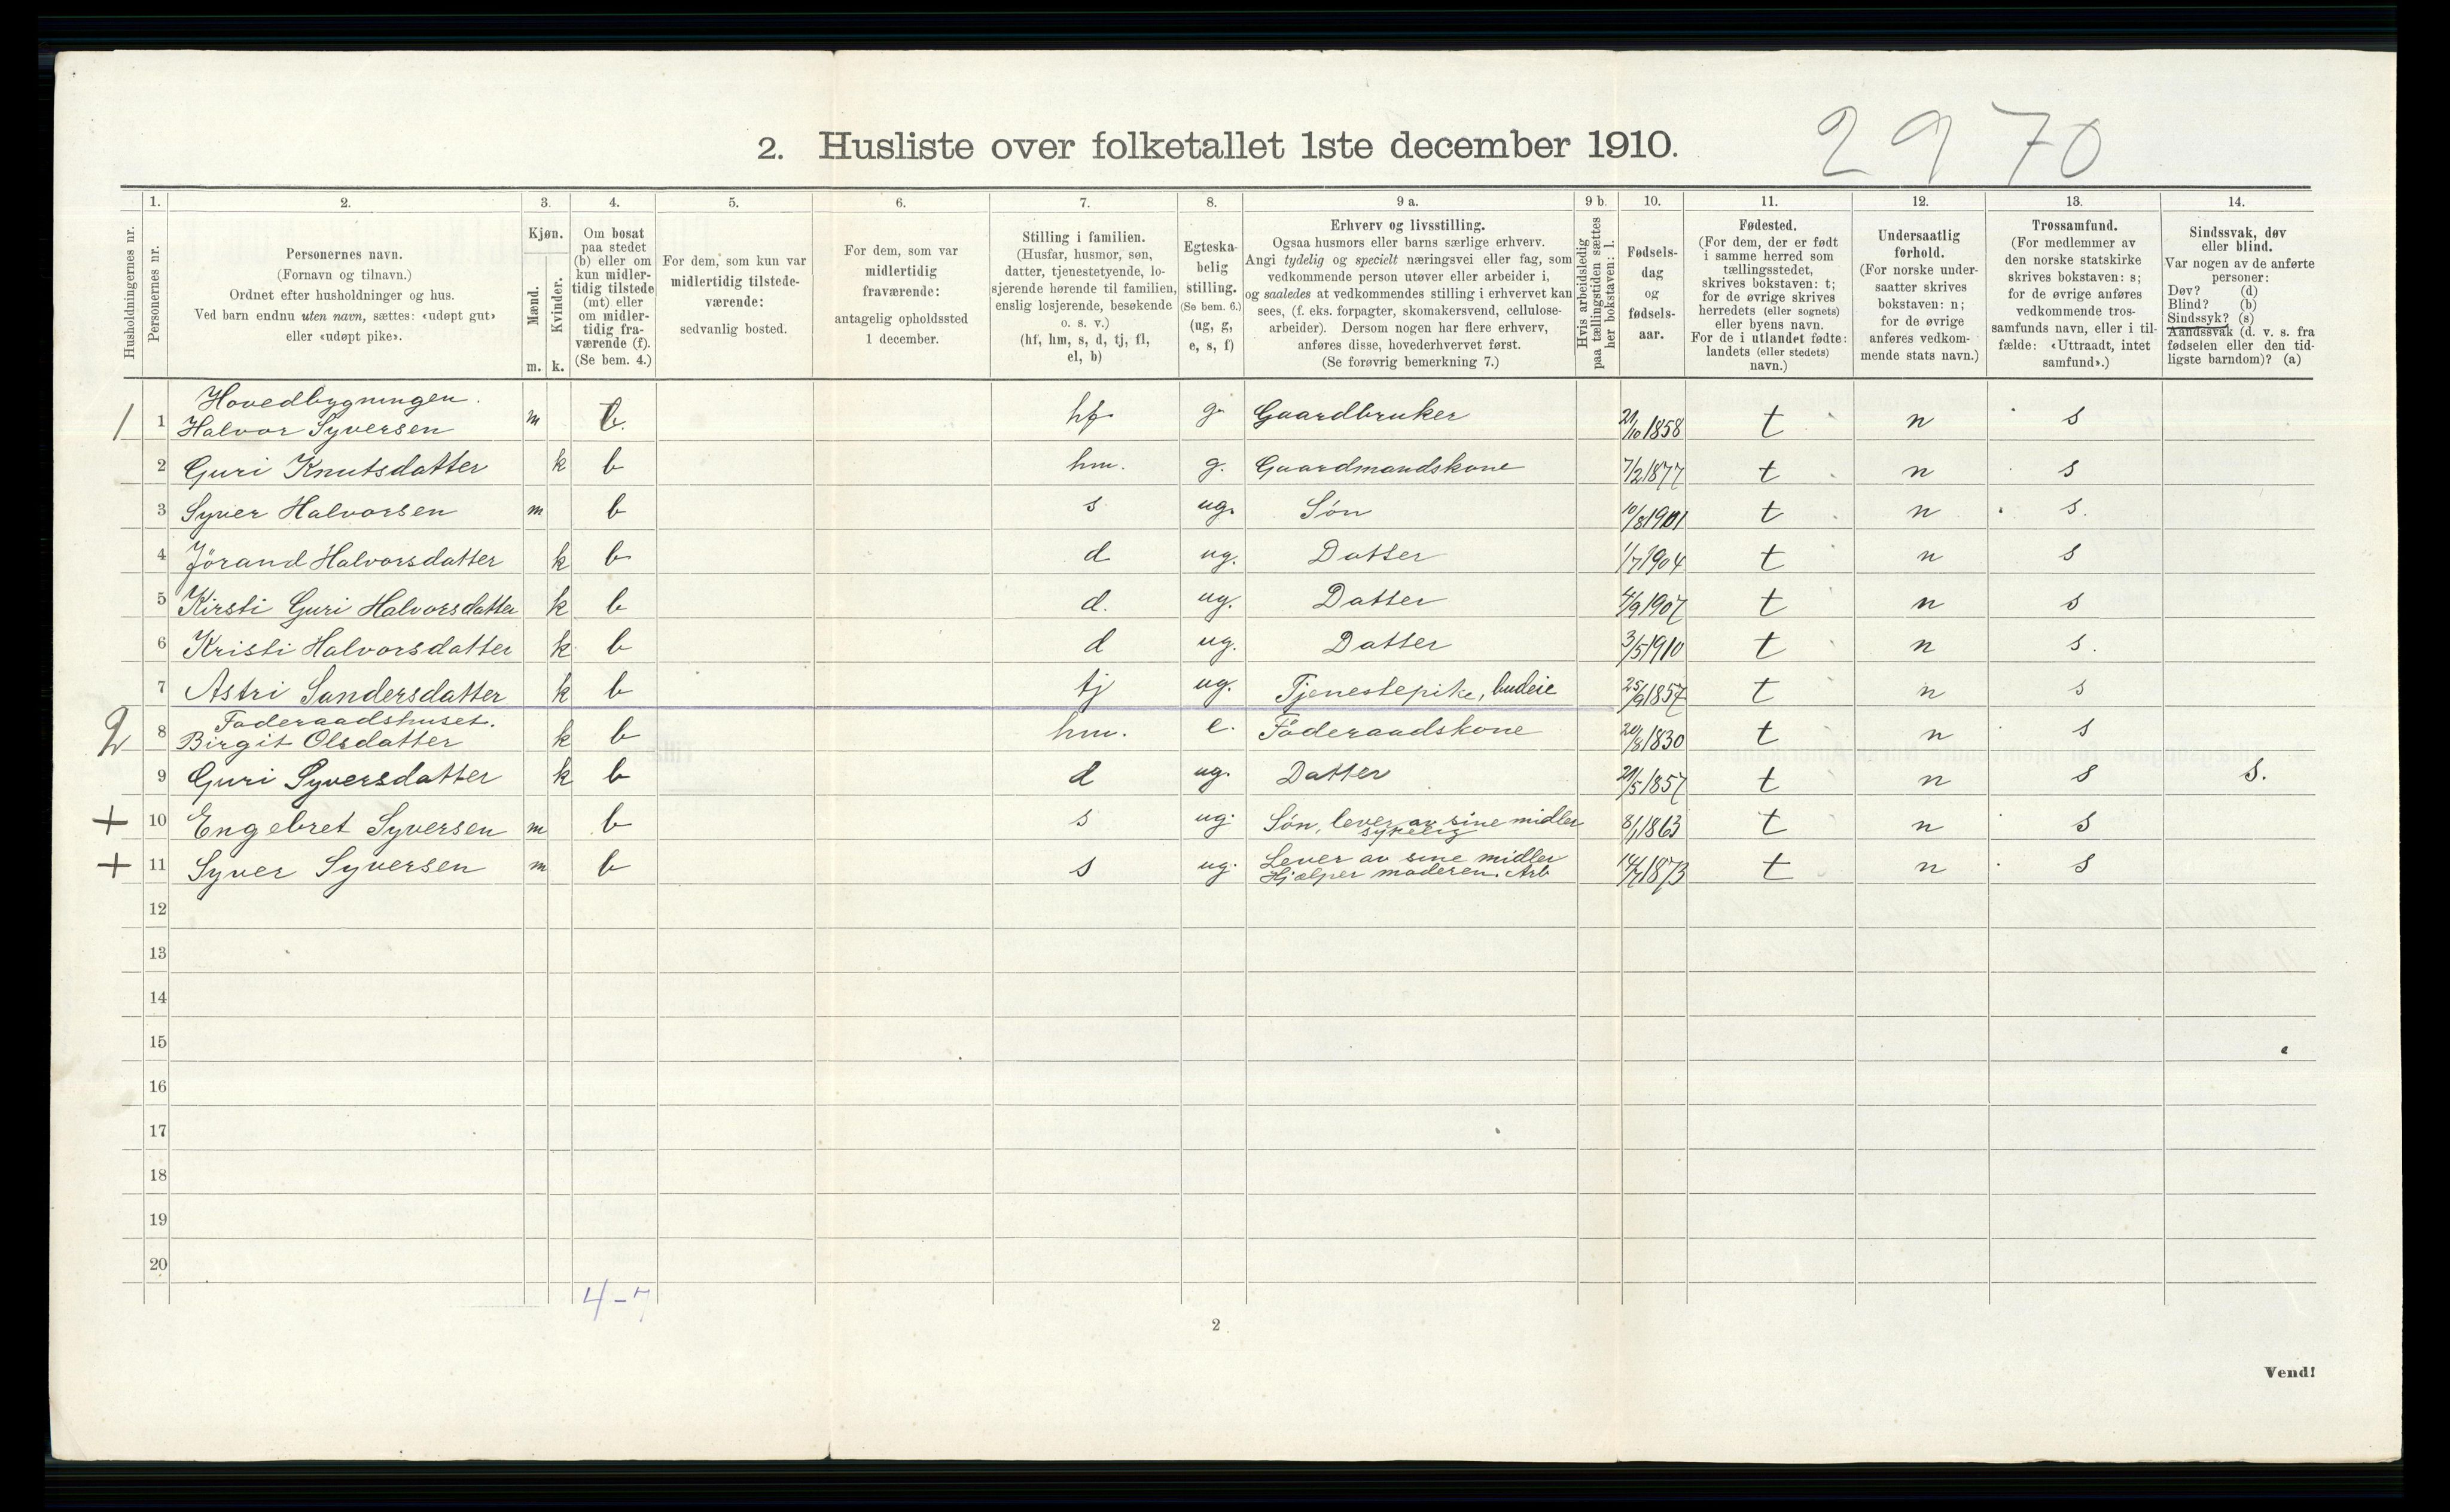 2970
2. Husliste over folketallet 1ste december 1910.
1. 2. 3. 4. 5. 6. 7. 8. 9 a. 9 b. 10. 11. 12. 13. 14.
Husholdningernes nr.
Personernes nr.
Personernes navn.
(Fornavn og tilnavn.)
Ordnet efter husholdninger og hus.
Ved barn endnu uten navn, sættes: «udøpt gut»
eller «udøpt pike».
Kjøn.
Mænd.
Kvinder.
m. k.
Om bosat
paa stedet
(b) eller om
kun midler-
tidig tilstede
(mt) eller
om midler-
tidig fra-
værende (f).
(Se bem. 4.)
For dem, som kun var
midlertidig tilstede-
værende:
sedvanlig bosted.
For dem, som var
midlertidig
fraværende:
antagelig opholdssted
1 december.
Stilling i familien.
(Husfar, husmor, søn,
datter, tjenestetyende, lo-
sjerende hørende til familien,
enslig losjerende, besøkende
o. s. v.)
(hf, hm, s, d, tj, fl,
el, b)
Egteska-
belig
stilling.
(Se bem. 6.)
(ug, g,
e, s, f)
Erhverv og livsstilling.
Ogsaa husmors eller barns særlige erhverv.
Angi tydelig og specielt næringsvei eller fag, som
vedkommende person utøver eller arbeider i,
og saaledes at vedkommendes stilling i erhvervet kan
sees, (f. eks. forpagter, skomakersvend, cellulose-
arbeider). Dersom nogen har flere erhverv,
anføres disse, hovederhvervet først.
(Se forøvrig bemerkning 7.)
Hvis arbeidsledig
paa tællingstiden sættes
her bokstaven: l.
Fødsels-
dag
og
fødsels-
aar.
Fødested.
(For dem, der er født
i samme herred som
tællingsstedet,
skrives bokstaven: t;
for de øvrige skrives
herredets (eller sognets)
eller byens navn.
For de i utlandet fødte:
landets (eller stedets)
navn.)
Undersaatlig
forhold.
(For norske under-
saatter skrives
bokstaven: n;
for de øvrige
anføres vedkom-
mende stats navn.)
Trossamfund.
(For medlemmer av
den norske statskirke
skrives bokstaven: s;
for de øvrige anføres
vedkommende tros-
samfunds navn, eller i til-
fælde: «Uttraadt, intet
samfund».)
Sindssvak, døv
eller blind.
Var nogen av de anførte
personer:
Døv? (d)
Blind? (b)
Sindssyk? (s)
Aandssvak (d. v. s. fra
fødselen eller den tid-
ligste barndom)? (a)
Hovedbygningen.
1 1 Halvor Syversen m b hf g Gaardbruker 21/10 1858 t n s
2 Guri Knutsdatter k b hm. g. Gaardmandskone 7/2 1877 t n s
3 Syver Halvorsen m b s ug. Søn 10/8 1901 t n s.
4 Jørand Halvorsdatter k b d ug. Datter 1/7 1904 t n s
5 Kirsti Guri Halvorsdatter k b d. ug. Datter 4/9 1907 t n s
6 Kristi Halvorsdatter k b d ug. Datter 3/5 1910 t n s.
7 Astri Sandersdatter k b tj ug. Tjenestepike, budeie 25/9 1857 t n s
Føderaadshuset.
2 8 Birgit Olsdatter k b hm. e. Føderaadskone 20/8 1830 t n s
9 Guri Syversdatter k b d ug. Datter 21/5 1857 t n s s.
+ 10 Engebret Syversen m b s ug. Søn, lever av sine midler 8/1 1863 t n s
sykelig
+ 11 Syver Syversen m b s ug. Lever av sine midler 14/7 1873 t n s
Hjælper moderen. Arb
12
13
14
15
16
17
18
19
20
4-7
2
Vend!